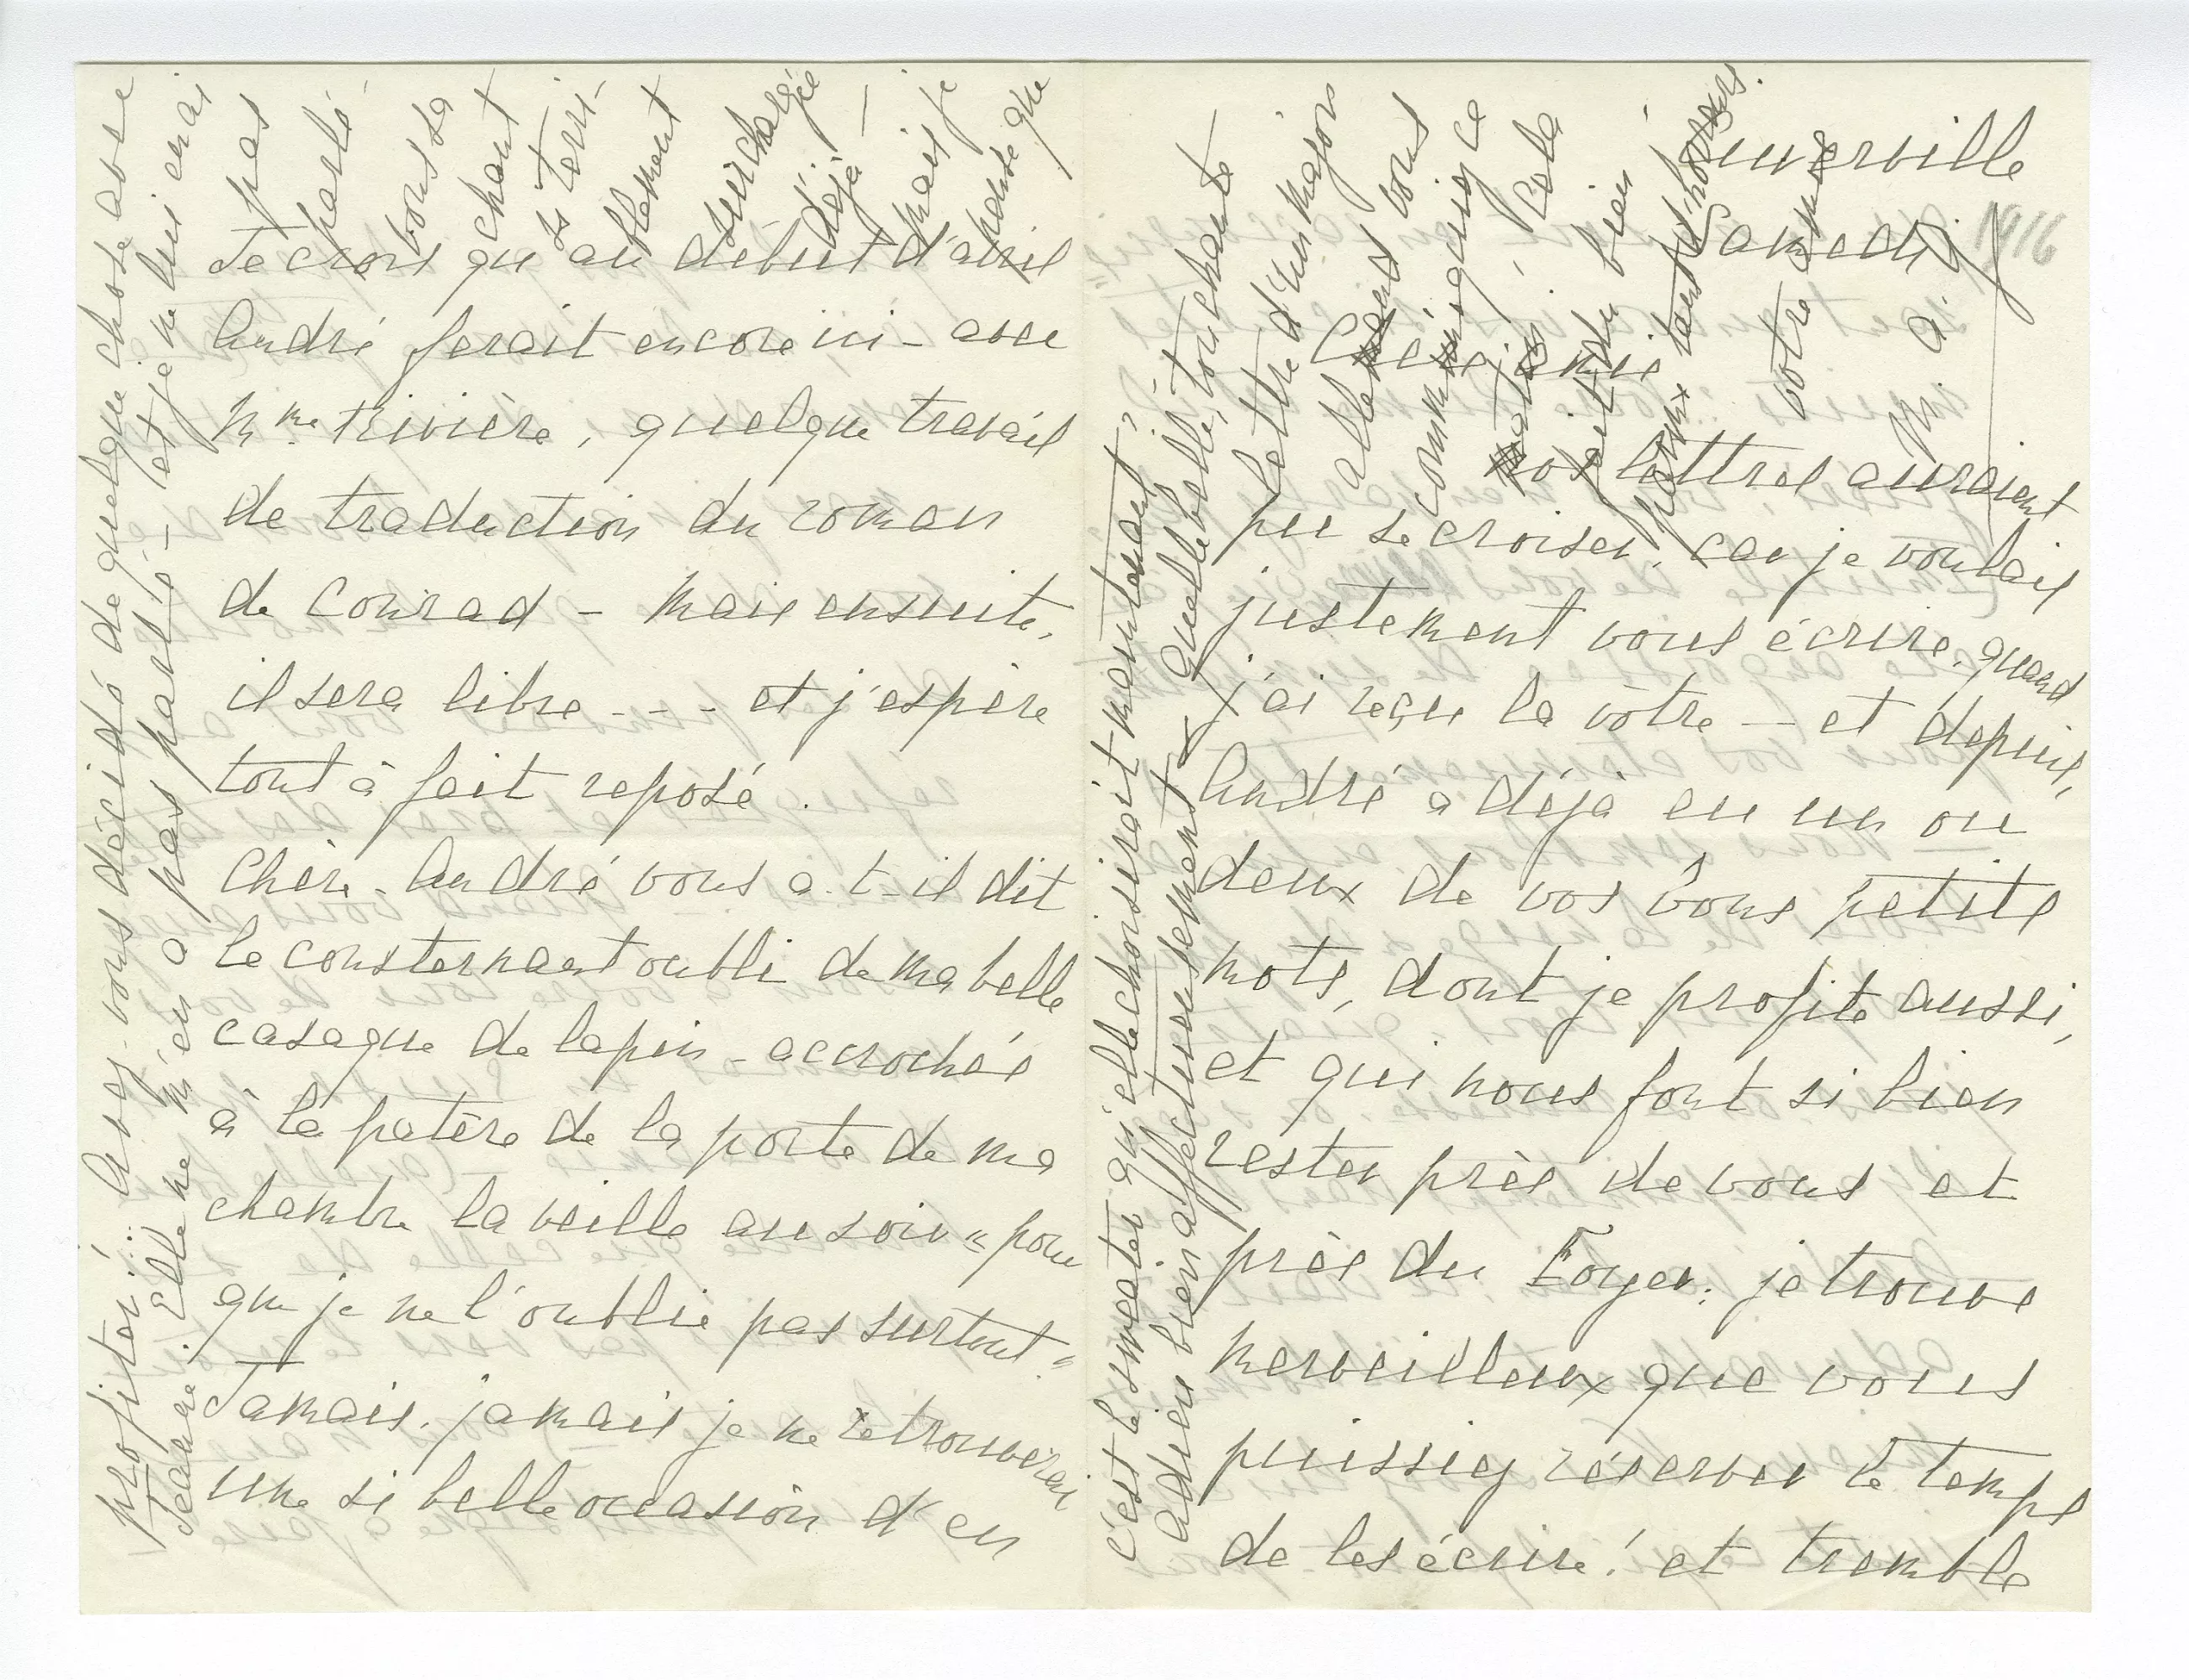 Cuverville
Samedi
1916
Chère amie
nos lettres auraient
pu se croiser, car je voulais
justement vous écrire, quand
j'ai reçu la vôtre — et depuis,
André a déjà eu un ou
deux de vos bons petits
mots, dont je profite aussi,
et qui nous font si bien
rester près de vous et
près du Foyer : je trouve
merveilleux que vous
puissiez réserver le temps
de les écrire ! et tremble
Je crois qu'au début d'avril
André ferait encore ici - avec
Mme Rivière, quelque travail
de traduction du roman
de Conrad - mais ensuite,
il sera libre - - - et j'espère
tout à fait reposé.
Chère - André vous a-t-il dit
le consternant oubli de ma belle
casaque de lapin - accrochée
à la patère de la porte de ma
chambre la veille au soir "pour
que je ne l'oublie pas surtout"
Jamais, jamais je ne retrouverai
une si belle occasion d'en
profiter ! .. Avez-vous décidé de quelque chose avec
Jeanne ? Elle ne m'en a pas parlé - et je ne lui en ai
pas
parlé
vous sachant
si terri-
blement
surchargée
déjà —
mais je
pense que
c'est le sweater qu'elle choisirait maintenant ?
Adieu bien affectueusement - Quelle belle, touchante
lettre d'un major
allemand vous
communiquiez ce
matin, cela
fait du bien -
parmi tant d'horreurs.
votre amie
M. a. g